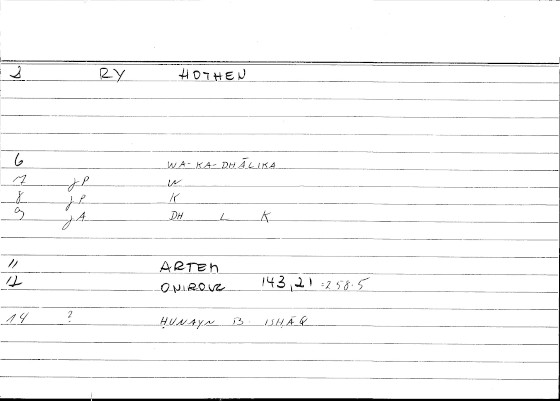 2 RY HOTHEN
6 WA-KA-DHĀLIKA
7 jP W
8 jP K
9 jA DH L K
11 ARTEM
12 ONIROCR 143,21 = 258.5
14 ? ḤUNAYN B. ISḤĀQ